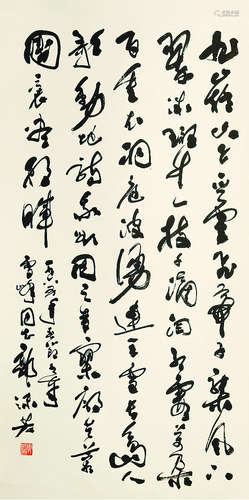 九嶷山上白雲飛帝子乘風下
翠微斑竹一枝千滴淚紅霞萬朵
百重衣洞庭波湧連天雪長島人
歌動地詩我欲因之夢寥廓芙蓉
國裏盡朝暉
雪峰同志 郭沫若